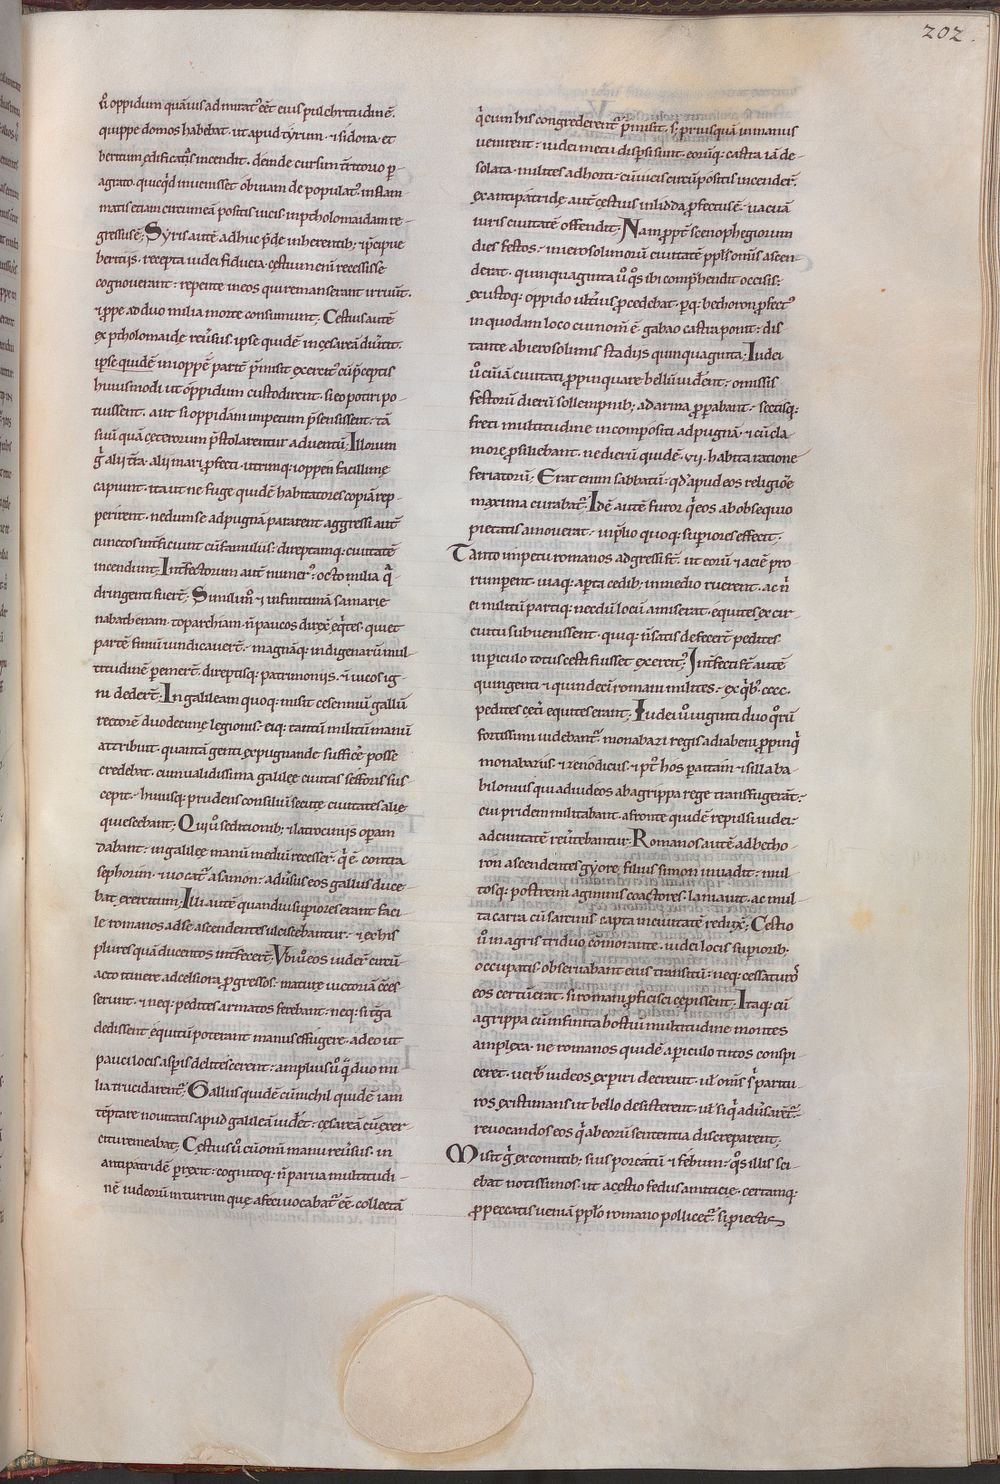 202.
u͛ oppidum quāuis admiratᵒ eēt eius pulchritudinē.
quippe domos habebat. ut apud tyrum. ⁊ sidona. et
beritum ędificatas incendit. deinde cursim t̄ritorio p̱
agrato. quicq̇d inuenisset obuiam de populatᵒ. inflam
matis etiam circumea positis uicis. in ptholomaidam re
gressus ē; Syris autē adhuc p̄de inherentib; ⁊ p̄cipue
beritiis. recepta iudei fiducia. cęstium enī recessisse
cognouerant: repente in eos qui remanserant irruūt.
⁊ p̱pe ad duo milia morte consumunt; Cestius autē
ex ptholomaide reūsus. ipse quidē in cęsareā diūtit.
ipse quidē in ioppē partē p̄misit exercitᵒ cū p̄ceptis
huiusmodi. ut oppidum custodirent. si eo potiri po
tuissent. aut si oppidani impetum p̄sensissent. tā
suū quā cęterorum p̄stolarentur aduentū; Illorum
g̊ alii t̄ra. alii mari p̱fecti. utrimq; ioppen facillime
capiunt. ita ut ne fuge quidē habitatores copiā rep-
perirent. nedum se ad pugnā pararent aggressi aut̄
cunctos int̄ficiunt cū familiis: direptamq; ciuitatē
incendunt; Int̄fectorum aut̄ numerᵒ. octo milia q̇-
dringenti fuer̄t; Similit̄ ⁊ in finitimā samarie
nabathenam. toparchiam. n̄ paucos direx̄ eq̇tes. qui et
partē finiū uindicauer̄t. magnāq; indigenarū mul
titudinē pemer̄t. direptisq; patrimoniis. ⁊ uicos ig
ni deder̄t; In galileam quoq; misit cesenniū gallū
rectorē duodecimę legionis. eiq; tantū militū manū
attribuit. quantā genti expugnande sufficēr posse
credebat. cum ualidissima galileę ciuitas sefforis sus
cepit. huiusq; prudens consiliū secutę ciuitates alię
quiescebant; Qui u͛ seditionib; ⁊ latrociniis operam
dabant: in galileę manū mediū recesser̄. q̇ ē contra
sephorim. ⁊ uocat̄ asamon: aduersus eos gallus duce-
bat exercitum; Illi autē quandiu supiores erant faci
le romanos ad se ascendentes ulciscebantur. ⁊ ex his
plures quā ducentos int̄fecer̄t; Vb u͛ eos uider̄ circū
acto itinere ad celsiora p̱gressos. mature uictoriā cc̄es
serunt. ⁊ neq; pedites armatos ferebant. neq; si t̄ga
dedissent equitū poterant manus effugere. adeo ut
pauci locis asp̱is delitescerent: amplius u͛ q̄ duo mi
lia trucidarent̄; Gallus quidē cū nichil quidē iam
tēptare nouitatis apud galileā uid̄et: cesareā cū exer
citu remeabat; Cestius u͛ cū omī manu reūsus. in
antipatridē p̱rexit: cognitoq; n̄ parua multitudi-
nē iudeorū in turrim quę afeci uocabat̄ ēē collectā
q̇ cum his congrederent̄ p̄misit. s; priusquā in manus
uenirent: iudei metu disp̱si sunt. eorūq; castra iā de-
solata. milites adhorti. cū uicis circū positis incender̄.
ex antipatride aut̄ cęstius in lidda p̱fectus ē. uacuā
uiris ciuitatē offendit; Nam p̱pt̄ scenophegiorum
dies festos. in ierosolimorū ciuitatē pp̄ls om̄is ascen
derat. quinquaginta u͛ q̊s ibi comp̄hendit occisis:
exustoq; oppido ultius p̱cedebat. p̱q; bethoron p̱fectᵒ
in quodam loco cui nom̄ ē. gabao castra ponit: dis
tante ab ierosolimis stadiis quinquaginta; Iudei
u͛ cū iā ciuitati p̱pinquare bellū uid̄ent: omissis
festorū dierū sollempnib; ad arma p̱p̱abant. sectisq;
freti multitudine incompositi ad pugnā. ⁊ cū cla
more p̱siliebant. ne dierū quidē .vii. habita ratione
feriatorū; Erat enim sabbatū: qd̓ apud eos religiōe
maxima curabat̄; Idē autē furor q̇ eos ab obsequio
pietatis amouerat. in p̱lio quoq; sup̱iores effecit.
Tanto impetu romanos adgressi st̄. ut eorū ⁊ aciē pro
rumpent. uiaq; ap̱ta cedib; in medio ruerent. ac n̊
ei militū partiq; necdū locū amiserat. equites ex cir
cuitu subuenissent. quiq; n̄ satis defecer̄t pedites
in periculo totus cęsti fuisset exercitᵒ; Int̄fecti st̄ autē
quingenti ⁊ quindecī romani milites. ex q̇bᵒ cccc.
pedites cęt̄i equites erant; Iudei u͛ uiginti duo q̊rū
fortissimi uidebant̄. monabazi regis adiabeni p̱pinq̇
monabazus. ⁊ cenodicus. ⁊ pᵒt hos paitain ⁊ silla ba-
bilonius qui ad iudeos ab agrippa rege transfugerāt:
cui pridem militabant. a fronte quidē repulsi iudei:
ad ciuitatē reūtebantur; Romanos autē ad betho-
ron ascendentes gyore filius simon inuadit: mul-
tosq; postremi agminis coactores laniauit. ac mul-
ta carra cū sarcinis capta in ciuitatē redux̄; Cestio
u͛ in agris triduo cōmorante. iudei locis sup̱iorib;
occupatis. obseruabant eius transitū: neq; cessaturos
eos certū erat. si romani p̱ficisci cępissent; Itaq; cū
agrippa cū infinita hostiū multitudine montes
amplexa. ne romanos quidē a periculo tutos conspi
ceret. uerb̓ iudeos exp̱iri decreuit. ut l om̄s s; paritu-
ros existimans ut bello desisterent. ut l si q̇ aduersarēt̄
reuocandos eos q̇ ab eorū sententia discreparent;
Misit g̊ ex comitib; suis porcatiū ⁊ febum. q̊s illis sci-
ebat notissimos. ut a cęstio fedus amicicie. certamq;
p̱ peccatis ueniā p̱plo romano pollicet̄. si piectis